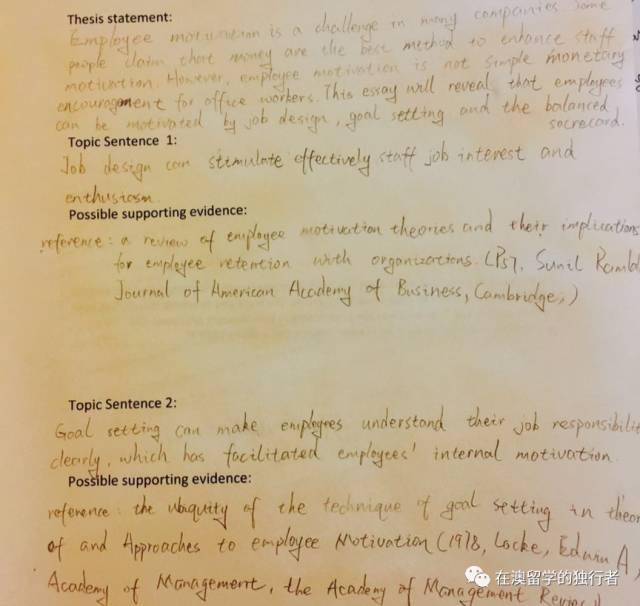 Thesis statement:
Employee motivation is a challenge in many companies. Some
people claim that money are the best method to enhance staff
motivation. However, employee motivation is not simple monetary
encouragement for office workers. This essay will reveal that employees
can be motivated by job design, goal setting and the balanced
socrecard.
Topic Sentence 1:
Job design can stimulate effectively staff job interest and
enthusiasm.
Possible supporting evidence:
reference: a review of employee motivation theories and their implications
for employee retention with organizations. (P57, Sunil
Journal of American Academy of Business, Cambridge,)
Topic Sentence 2:
Goal setting can make employees understand their job responsibilit
clearly, which has facilitated employees' internal motivation.
Possible supporting evidence:
reference: the ubiquity of the technique of goal setting in theor
of and Approaches to employee Motivation (1978, Locke, Edwin A,
Academy of Management, the Academy of Management Review)
在澳留学的独行者